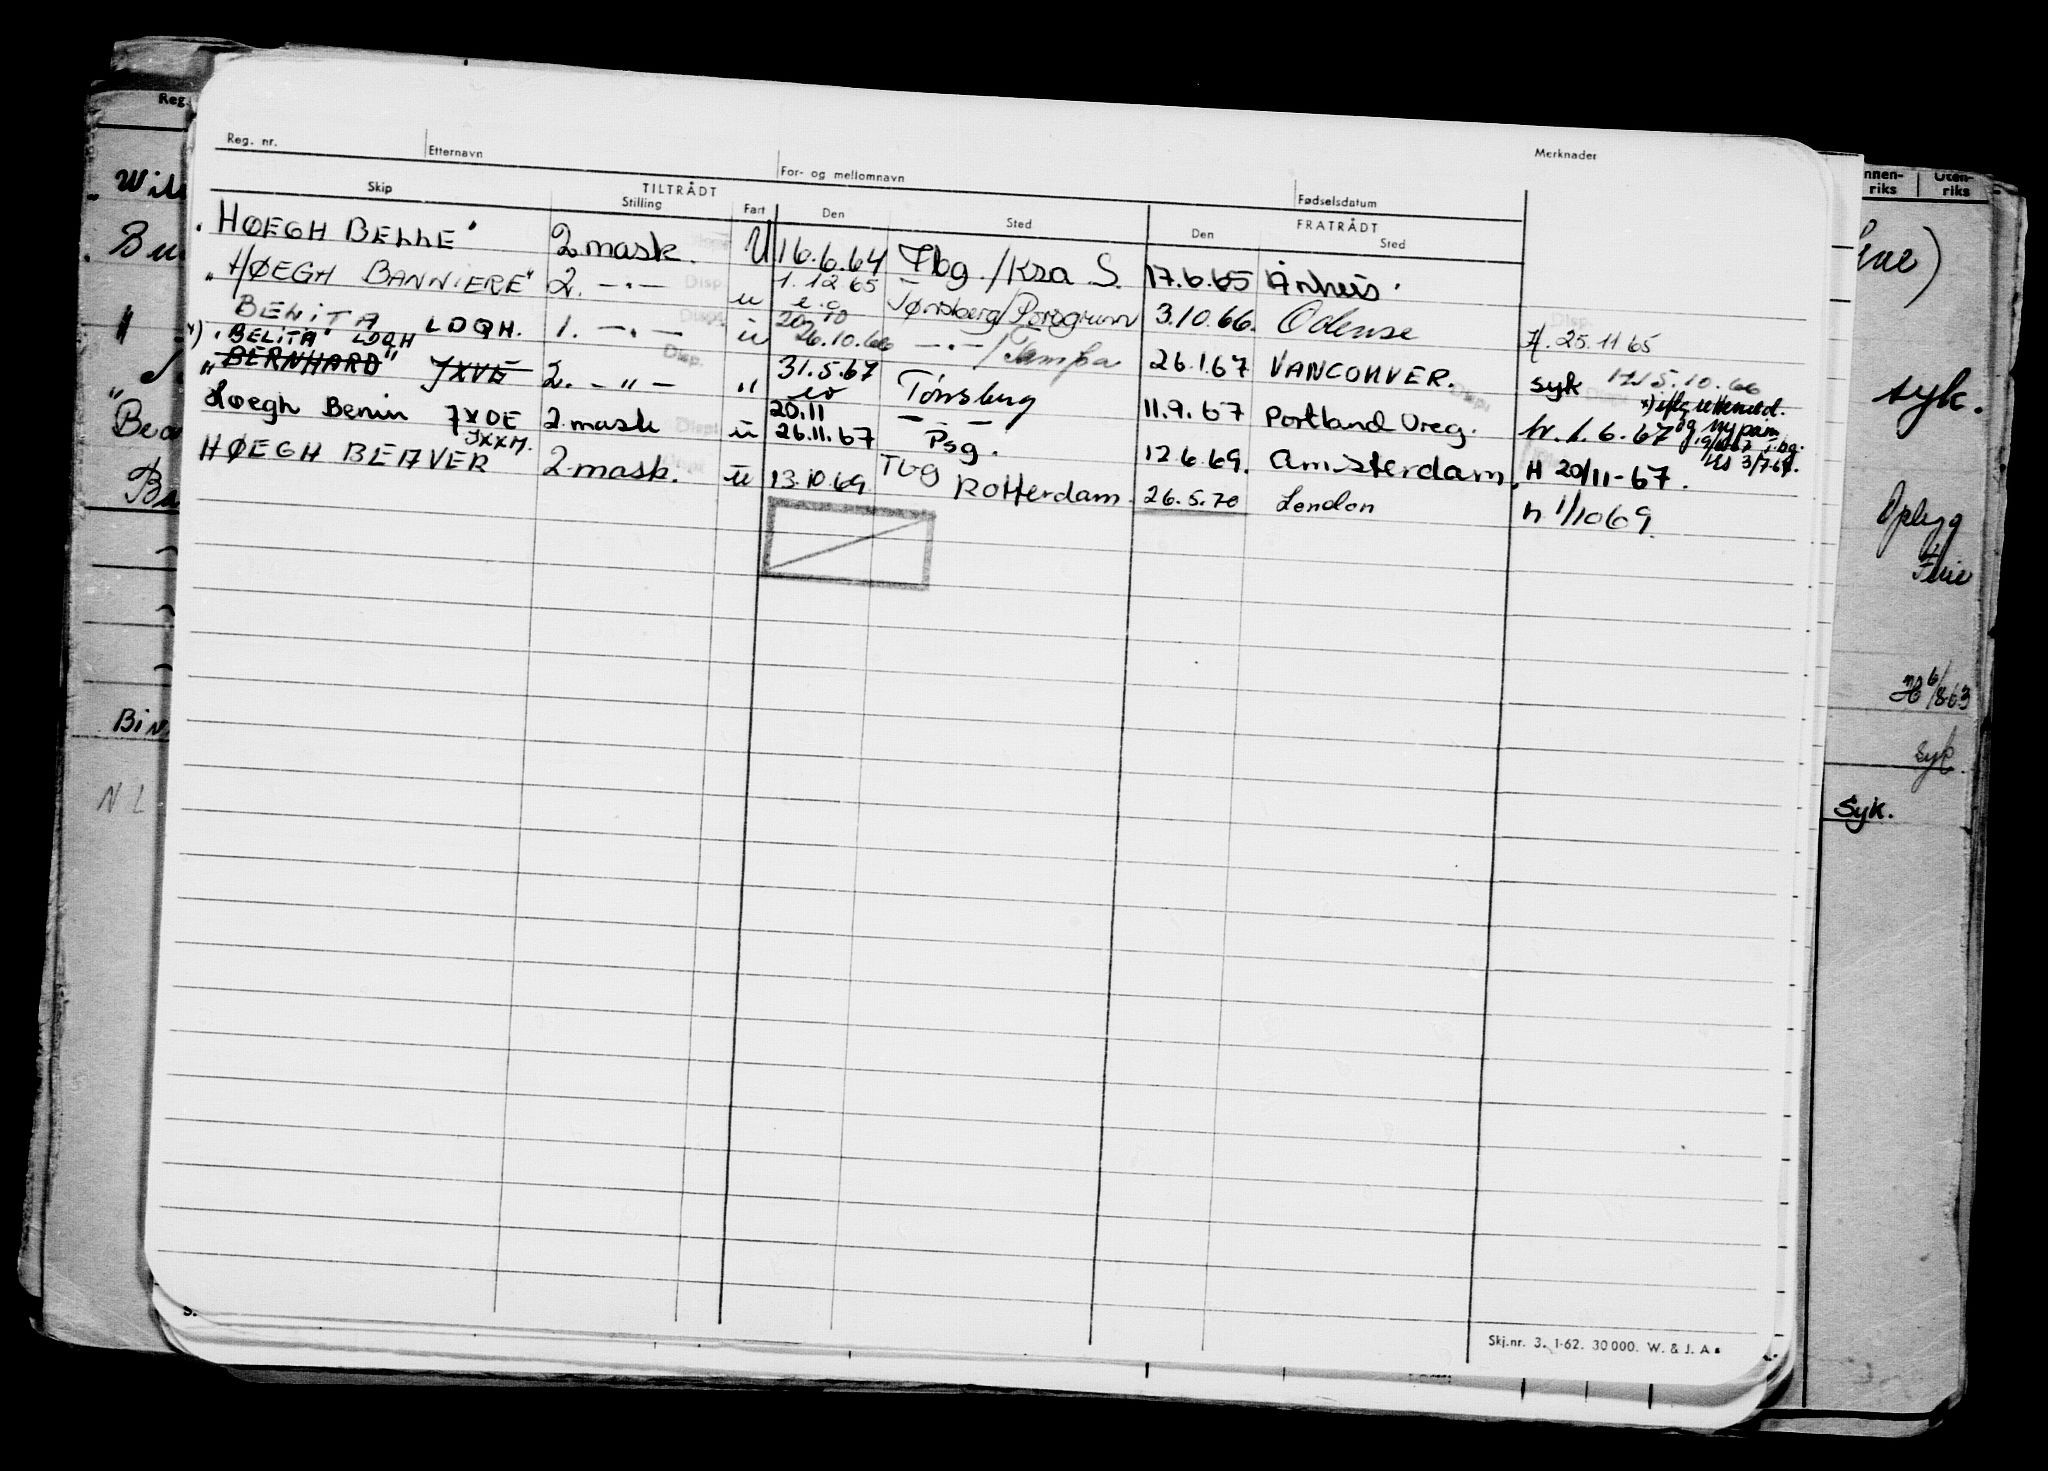 Reg. nr. Etternavn For- og mellomnavn Fødselsdatum Merknader
Skip TILTRÅDT Stilling Fart Den Sted FRATRÅDT Den Sted
"HØEGH BELLE" 2 mask. U 16.6.64 Tbg./Kra S. 17.6.65 Århus.
"HØEGH BANNIERE" 2. -"- u 1.12.65 Tønsberg/Porsgrunn 3.10.66. Odense H. 25.11 65
BELITA LDQH. 1. -"- u 26.10.66 -"-/Tampa 26.1.67 VANCOUVER. syk 5.10.66
x) "BELITA" LDQH
"BERNHARD" JXVE 2. -"- " 31.5.67 Tønsberg 11.9.67 Portland Oreg. 1.6.67 og ny påm.
Høegh Benin JXOE 2 mask u 20.11 26.11.67 - Psg. - 12.6.69. Amsterdam. H 20/11-67.
JXXM.
HØEGH BEAVER 2 mask. u 13.10.69 Tbg Rotterdam. 26.5.70 London h 1/10 69.
Skj.nr. 3. 1-62. 30 000. W. & J. A
Reg.
Bin
N L
Innen-riks Uten-riks
syk.
Opbygg
Ferie
6/8 63
syk.
Syk.